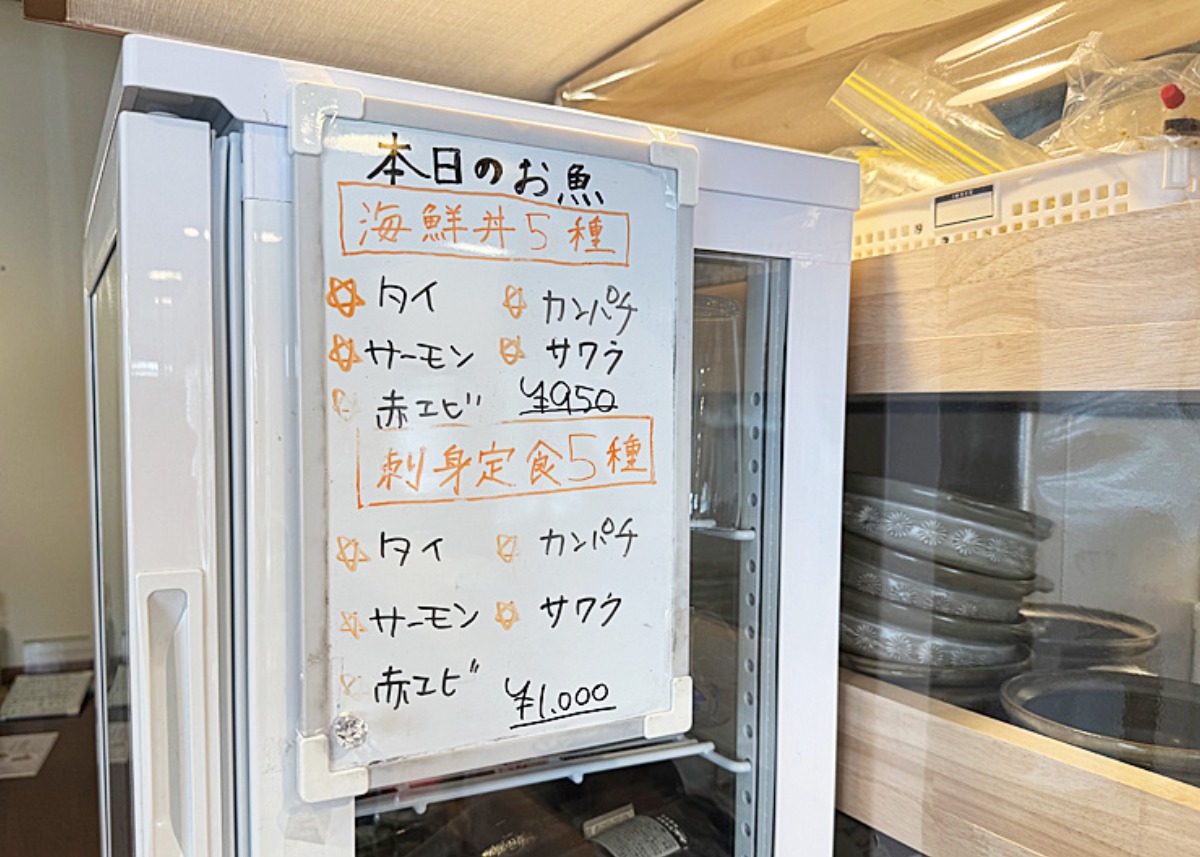 本日のお魚
海鮮丼5種
タイ カンパチ
サーモン サワラ
赤エビ ¥950
刺身定食5種
タイ カンパチ
サーモン サワラ
赤エビ ¥1.000